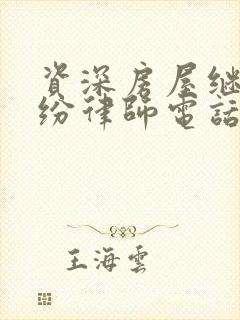 資深房屋继
纷律師電話
王海雲